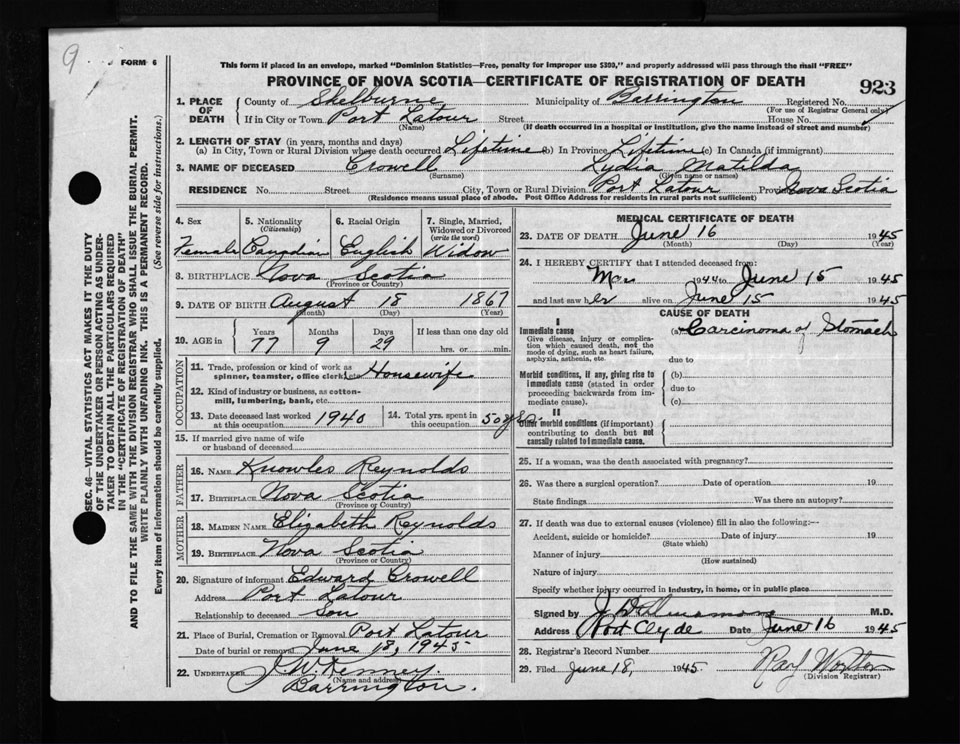 9
FORM 6
This form if placed in an envelope, marked "Dominion Statistics—Free, penalty for improper use $300," and properly addressed will pass through the mail "FREE"
PROVINCE OF NOVA SCOTIA—CERTIFICATE OF REGISTRATION OF DEATH
923
1. PLACE OF DEATH County of Shelburne Municipality of Barrington Registered No. (For use of Registrar General only)
If in City or Town Port Latour Street House No.
(Name) (If death occurred in a hospital or institution, give the name instead of street and number)
2. LENGTH OF STAY (in years, months and days)
(a) In City, Town or Rural Division where death occurred Lifetime (b) In Province Lifetime (c) In Canada (if immigrant)
3. NAME OF DECEASED Crowell Lydia Matilda
(Surname) (Given name or names)
RESIDENCE No. Street City, Town or Rural Division Port Latour Province Nova Scotia
(Residence means usual place of abode. Post Office Address for residents in rural parts not sufficient)
4. Sex Female
5. Nationality (Citizenship) Canadian
6. Racial Origin English
7. Single, Married, Widowed or Divorced (write the word) Widow
8. BIRTHPLACE Nova Scotia
(Province or Country)
9. DATE OF BIRTH August 18 1867
(Month) (Day) (Year)
10. AGE in Years 77 Months 9 Days 29 If less than one day old hrs. or min.
OCCUPATION
11. Trade, profession or kind of work as spinner, teamster, office clerk, etc. Housewife
12. Kind of industry or business, as cotton-mill, lumbering, bank, etc.
13. Date deceased last worked at this occupation 1940
14. Total yrs. spent in this occupation 50 yrs.
15. If married give name of wife or husband of deceased
FATHER
16. NAME Knowles Reynolds
17. BIRTHPLACE Nova Scotia
(Province or Country)
MOTHER
18. MAIDEN NAME Elizabeth Reynolds
19. BIRTHPLACE Nova Scotia
(Province or Country)
20. Signature of informant Edward Crowell
Address Port Latour
Relationship to deceased Son
21. Place of Burial, Cremation or Removal Port Latour
Date of burial or removal June 18, 1945
22. UNDERTAKER J. W. Kenney
(Name and address)
Barrington.
MEDICAL CERTIFICATE OF DEATH
23. DATE OF DEATH June 16 1945
(Month) (Day) (Year)
24. I HEREBY CERTIFY that I attended deceased from:
1944 to June 15 1945
and last saw her alive on June 15 1945
CAUSE OF DEATH
I
Immediate cause (a) Carcinoma of Stomach
Give disease, injury or complication which caused death, not the mode of dying, such as heart failure, asphyxia, asthenia, etc.
due to
Morbid conditions, if any, giving rise to immediate cause (stated in order proceeding backwards from immediate cause).
(b)
due to
(c)
II
Other morbid conditions (if important) contributing to death but not causally related to immediate cause.
25. If a woman, was the death associated with pregnancy?
26. Was there a surgical operation? Date of operation 19
State findings Was there an autopsy?
27. If death was due to external causes (violence) fill in also the following:—
Accident, suicide or homicide? Date of injury 19
(State which)
Manner of injury
(How sustained)
Nature of injury
Specify whether injury occurred in industry, in home, or in public place
Signed by M.D.
Address Port Clyde Date June 16 1945
28. Registrar's Record Number
29. Filed June 18, 1945
(Division Registrar)
SEC. 46—VITAL STATISTICS ACT MAKES IT THE DUTY
OF THE UNDERTAKER OR PERSON ACTING AS UNDER-
TAKER TO OBTAIN ALL THE PARTICULARS REQUIRED
IN THE "CERTIFICATE OF REGISTRATION OF DEATH"
AND TO FILE THE SAME WITH THE DIVISION REGISTRAR WHO SHALL ISSUE THE BURIAL PERMIT.
WRITE PLAINLY WITH UNFADING INK. THIS IS A PERMANENT RECORD.
Every item of information should be carefully supplied. (See reverse side for instructions.)